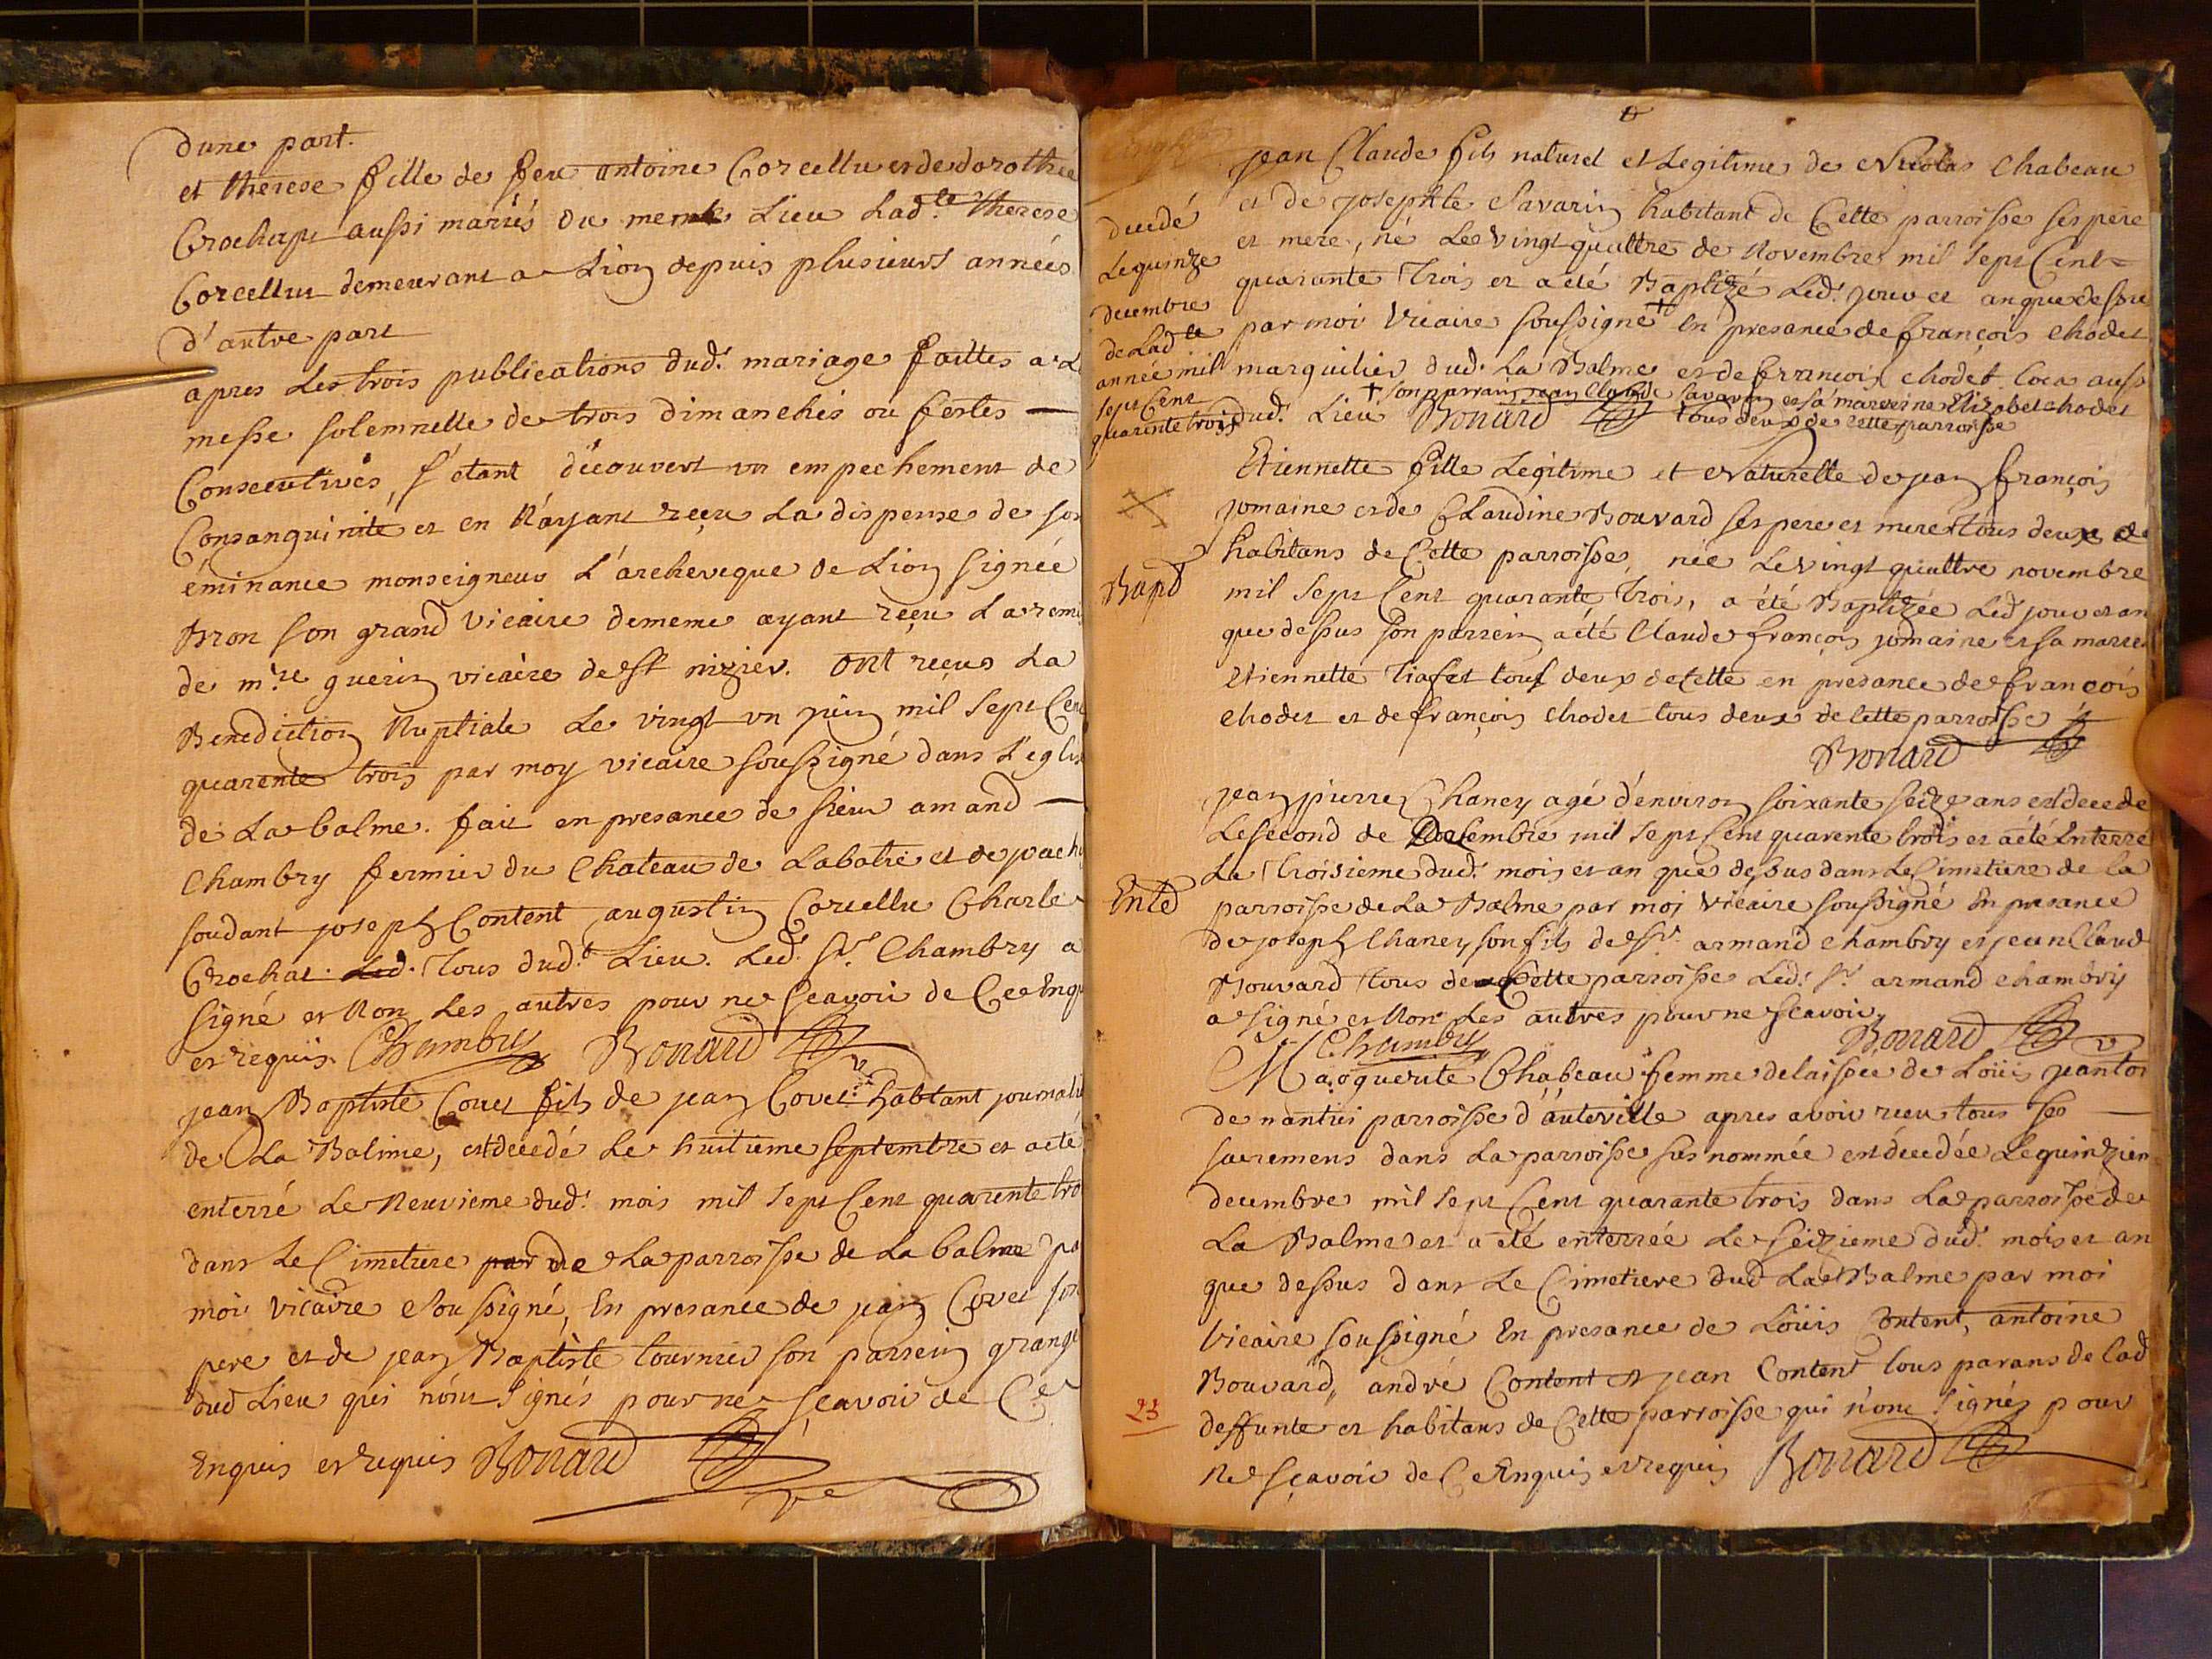 dune part.
et therese fille de feu antoine Corcellu et de dorothée
Crochat aussi mariés du meme Lieu Lad.te therese
Corcellu demeurant a Lion depuis plusieurs années
d'autre part
apres les trois publications dud.t mariage faittes a
messe solemnelle de trois dimanches ou festes —
Consecutives, s'etant découvert un empechement de
Consanguinité et en Nayant reçeu La dispense de son
éminance monseigneur L'archeveque de Lion signée
son grand vicaire dememe ayant reçeu La remi
de m.re guerin vicaire de st nizier. ont reçus La
Benediction Nuptiale Le vingt un juin mil sept Cent
quarente trois par moy vicaire soussigné dans L'eglise
de La balme. fait en presance de sieur amand —
Chambry fermier du Chateau de Labatie et de
soudant joseph Content augustin Corcellu Charle
Crochat. Led. tous dud.t Lieu. Led. Sr. Chambry a
signé et Non Les autres pour ne sçavoir de Ce Enqu
et requis. Chambry Bonard
jean Baptiste Covet fils de jean Covet habtant journali
de La Balme, est decedé Le huitieme septembre et a eté
enterré Le Neuvieme dud.t mois mil sept Cent quarente tro
dans Le Cimetiere par de La parroisse de La balme pa
moi vicaire soussigné, En presance de jean Covet son
pere et de jean Baptiste tournier son parrein grang
dud Lieu qui n'ont signés pour ne sçavoir de Ce
Enquis et requis Bonard
jean Claude fils naturel et Legitime de Nicolas Chabeau
et de josephte Savarin habitant de Cette parroisse ses pere
et mere, né Le vingt quattre de Novembre mil sept Cent
quarante trois et a eté Baptizé Led.t jour et an que dessus
par moi vicaire soussigné + En presance de françois Chodet
marguilier dud. La Balme et de françois chodet aussi
+ son parrain jean Claude Savarin et sa marreine Elizabet chodet
dud.t Lieu Bonard tous deux de cette parroisse
decedé
Le quinze
decembre
de Lad te
année mil
sept Cent
quarente trois
Etiennette fille Legitime et Naturelle de jean françois
jomaine et de Claudine Bouvard ses pere et mere tous deux de
habitans de Cette parroisse, née Le vingt quattre novembre
mil sept Cent quarante trois, a été Baptizée Led jour et an
que dessus son parrein a été Claude françois jomaine et sa marre
etiennette tous deux de Cette en presance de françois
chodet et de françois chodet tous deux de Cette parroisse
Bonard
Bapt
jean pierre Chaney agé d'environ soixante seize ans est decede
Le second de Decembre mil sept Cent quarente trois et a été Enterré
Le troisieme dud.t mois et an que dessus dans Le Cimetiere de La
parroisse de La Balme par moi vicaire soussigné En presance
de joseph Chaney son fils de Sr. armand chambry et jean Claud
Bouvard tous de Cette parroisse Led.t Sr armand chambry
a signé et Non Les autres pour ne scavoir
Chambry Bonard
Ente
Marguerite Chabeau femme delaissée de Loüis jeantor
de nantui parroisse d'auteville apres avoir reçu tous ses —
sacremens dans La parroisse sus nommée est decedée Le quinziem
decembre mil sept Cent quarante trois dans La parroisse de
La Balme et a été enterrée Le seizieme dud.t mois et an
que dessus dans Le Cimetiere dud La Balme par moi
Vicaire soussigné En presance de Loüis Content, antoine
Bouvard, andré Content et jean Content tous parans de Lad
deffunte et habitans de Cette parroisse qui n'ont signés pour
Ne sçavoir de Ce Enquis et requis Bonard
23